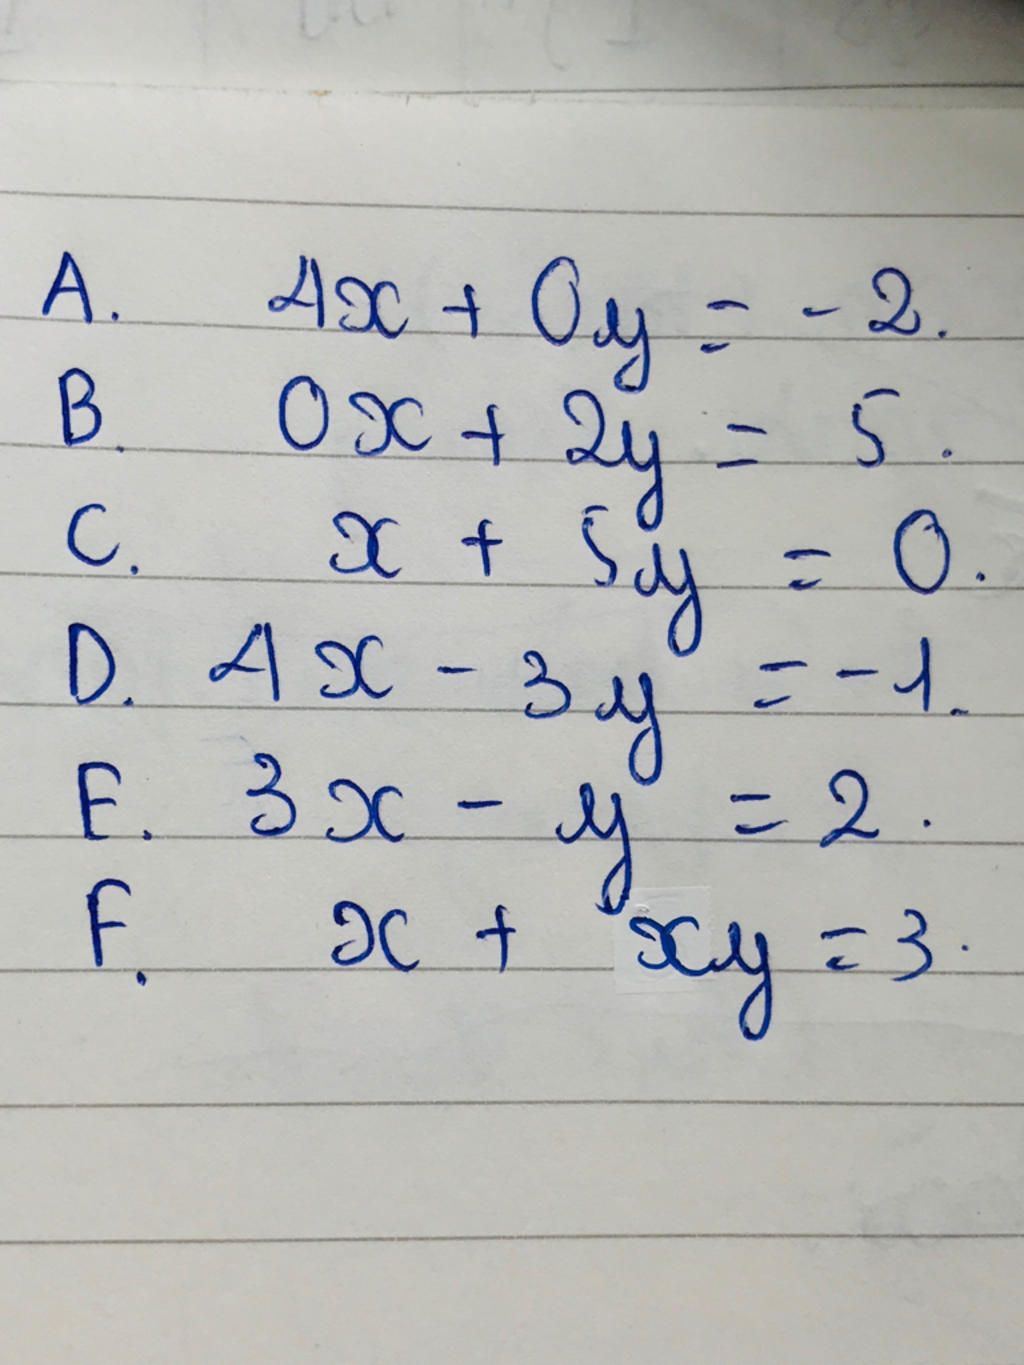 A. 4x + 0y = -2.
B. 0x + 2y = 5.
C. x + 5y = 0.
D. 4x - 3y = -1.
E. 3x - y = 2.
F. x + xy = 3.